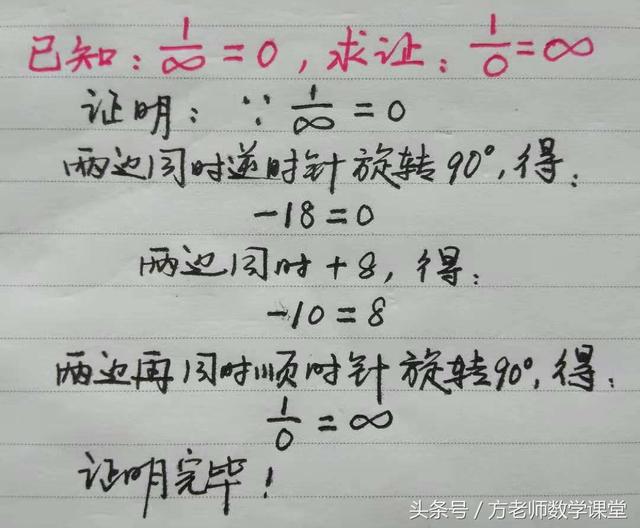 已知：1/∞ = 0，求证：1/0 = ∞
证明：∵ 1/∞ = 0
两边同时逆时针旋转90°，得：
-18 = 0
两边同时+8，得：
-10 = 8
两边再同时顺时针旋转90°，得：
1/0 = ∞
证明完毕！
头条号／方老师数学课堂